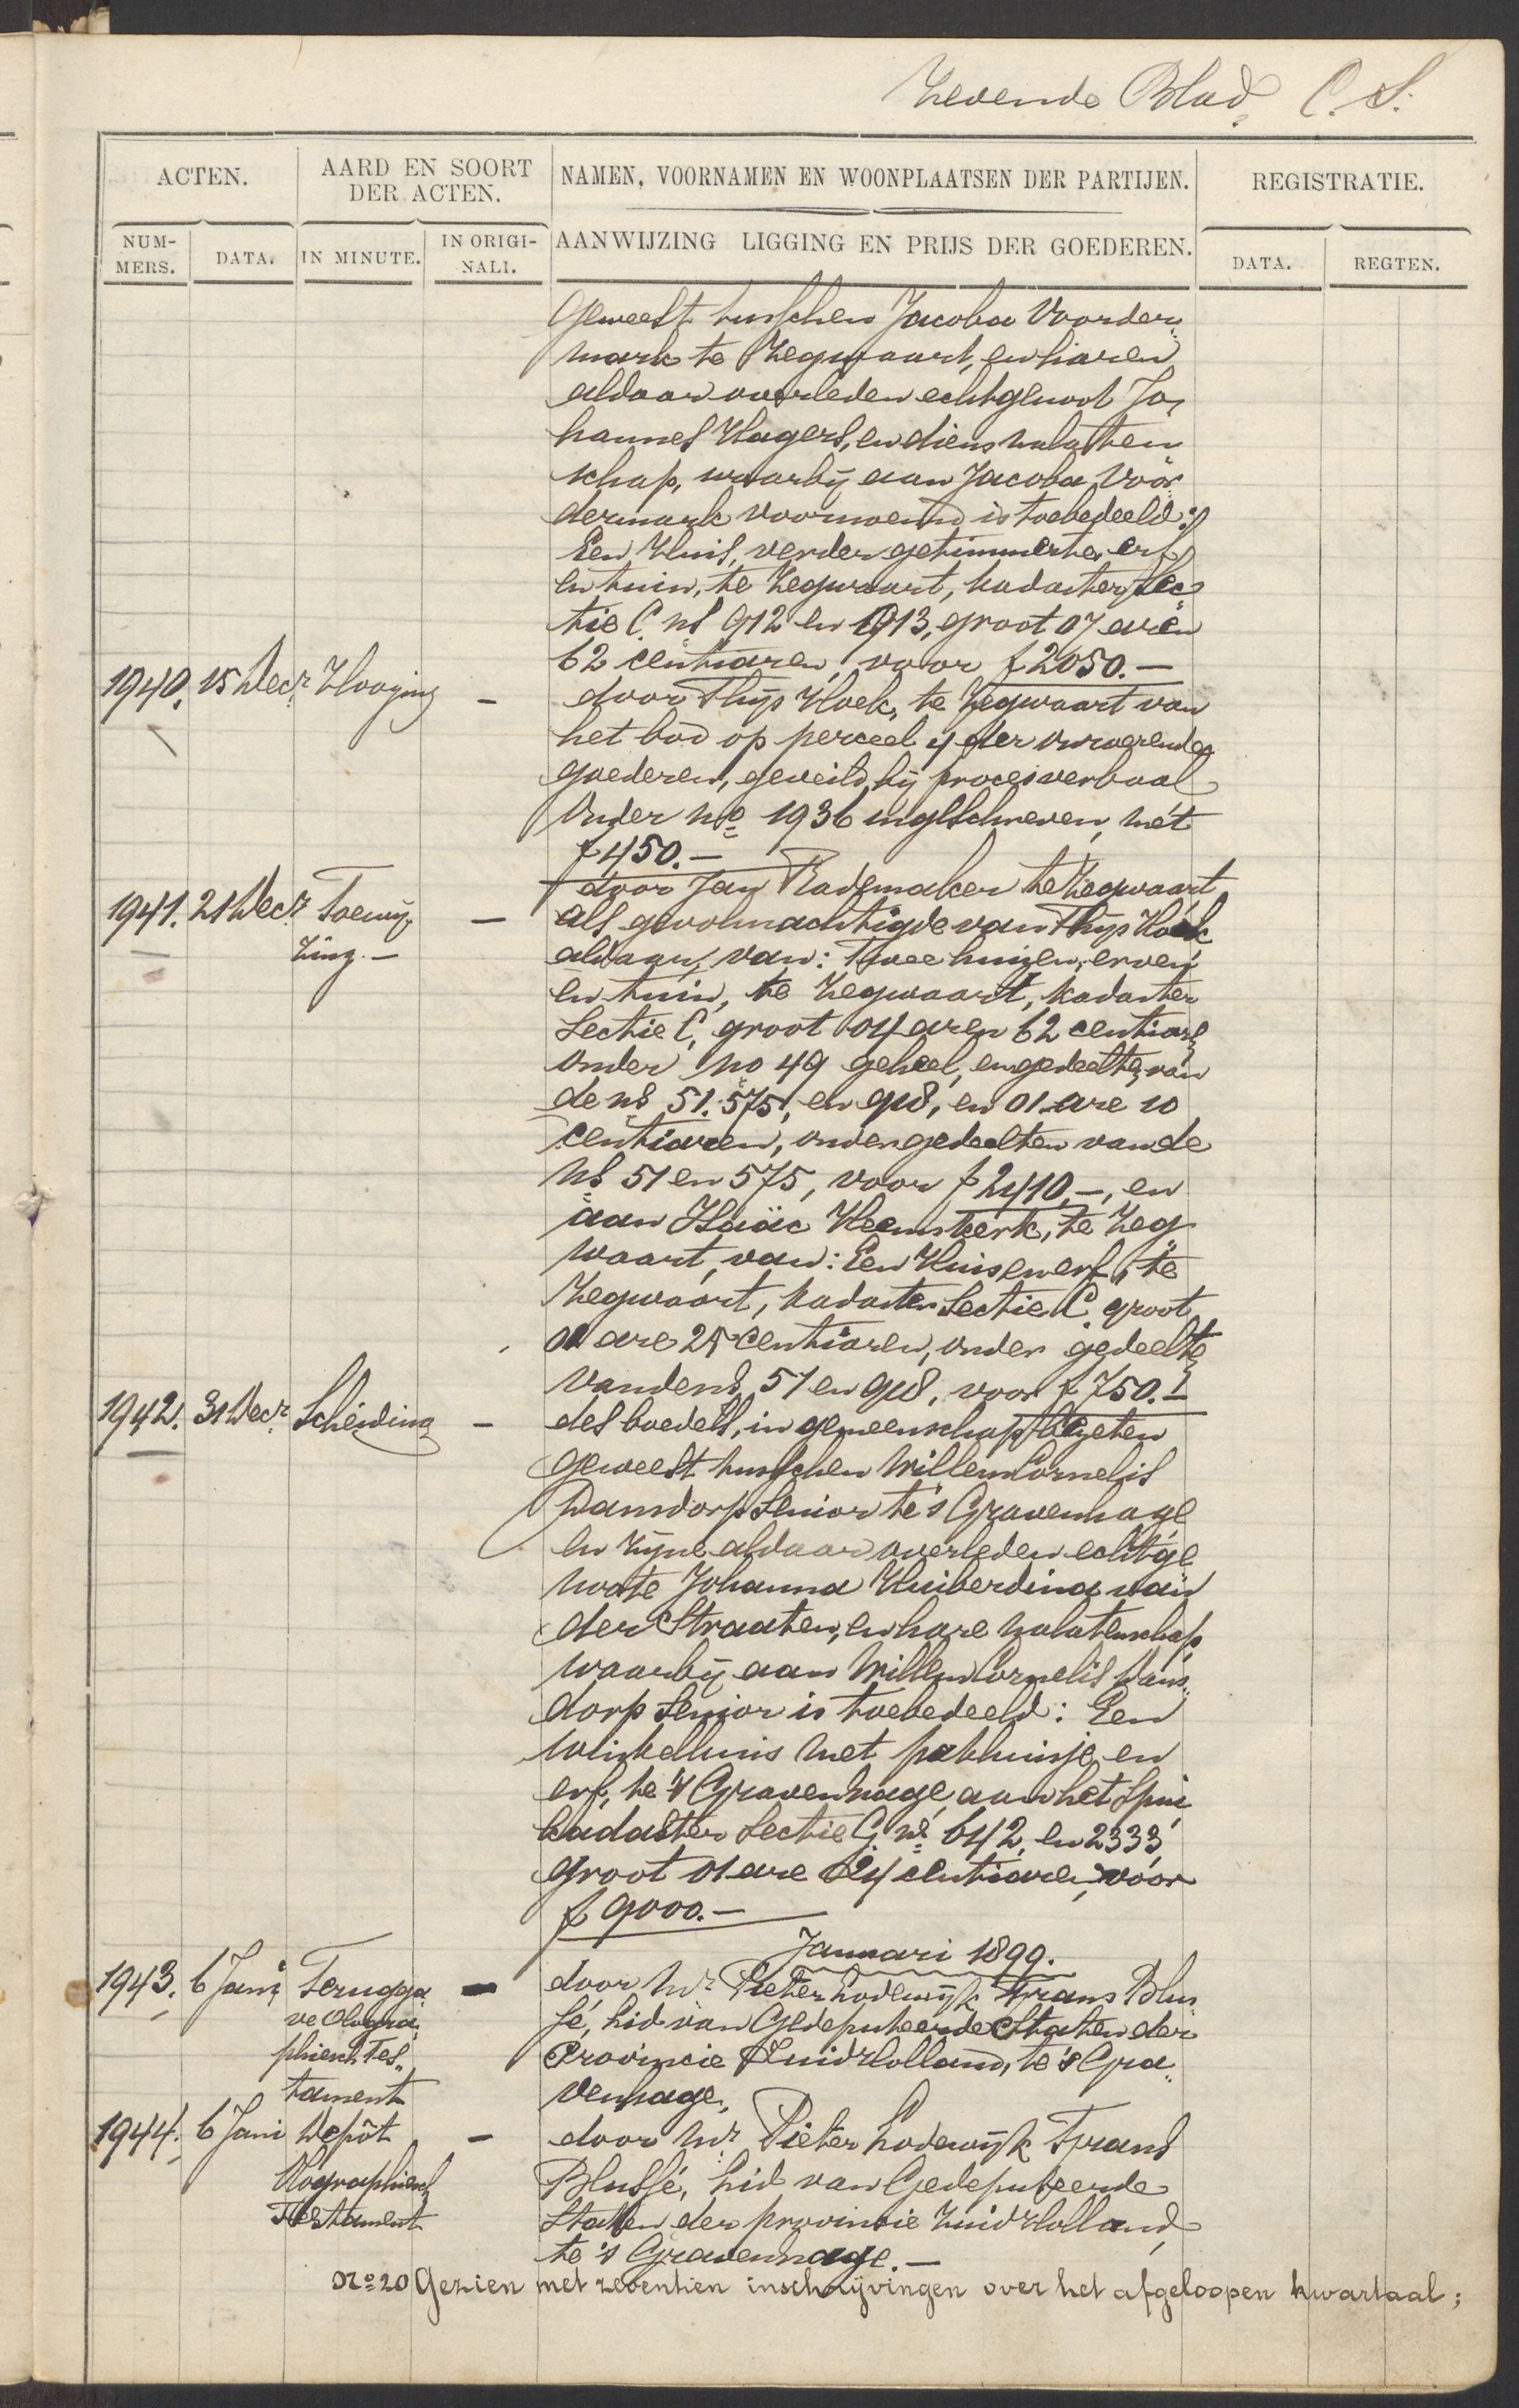 Zevende Blad. C. S.
ACTEN.
AARD EN SOORT DER ACTEN.
NAMEN, VOORNAMEN EN WOONPLAATSEN DER PARTIJEN.
REGISTRATIE.
NUM-MERS.
DATA.
IN MINUTE.
IN ORIGI-NALI.
AANWIJZING LIGGING EN PRIJS DER GOEDEREN.
DATA.
REGTEN.
geweest tusschen Jacoba Voorder
mark te Zegwaart, en haren
aldaar overleden echtgenoot Jo
hannes Hagers, en diens nalaten
schap, waarbij aan Jacoba Voor
dermark voornoemd is toebedeeld:
Een Huis, verder getimmerte, erf
en tuin, te Zegwaart, kadaster Sec
tie C. ns 912 en 913, groot 07 aren
62 centiaren, voor f 2050.-
1940. 15 Decr. Hooging - door Thijs Hoek, te Zegwaart van
het bod op perceel 4 der onroerende
goederen, geveild bij procesverbaal
onder no 1936 ingeschreven, met
f 450.-
1941. 21 Decr. Toewij - door Jan Rademaker te Zegwaart
zing.- als gevolmachtigde van Thijs Hoek
aldaar, van: Twee huizen, erven
en tuin, te Zegwaart, kadaster
Sectie C, groot 04 aren 62 centiare
onder no 49 geheel, en gedeelte van
de ns 51. 575, en 918, en 01 are 10
centiaren, onder gedeelten van de
ns 51 en 575, voor f 2410,-, en
aan Isaäc Heemskerk, te Zeg
waart, van: Een Huis en erf, te
Zegwaart, kadaster Sectie C. groot
01 are 25 centiaren, onder gedeelte
van de ns 51 en 918, voor f 750.-
1942. 31 Decr. Scheiding - des boedels, in gemeenschap bezeten
geweest tusschen Willem Cornelis
Damdorp Senior te 's Gravenhage
en zijne aldaar overleden echtge
noote Johanna Huiberdina van
der Straaten, en hare nalatenschap
waarbij aan Willem Cornelis Dam
dorp Senior is toebedeeld: Een
winkelhuis met pakhuisje en
erf, te 's Gravenhage, aan het Spui
kadaster Sectie G. ns 642, en 2333,
groot 01 are 24 centiaren, voor
f 9000.-
Januari 1899.
1943. 6 Jani Terugga - door Mr Pieter Lodewijk Frans Blus
ve Ologra sé, Lid van Gedeputeerde Staten der
phisch Tes Provincie Zuid Holland, te 's Gra
tament venhage.
1944. 6 Jani Depôt - door Mr Pieter Lodewijk Frans
Olographisch Blussé, Lid van Gedeputeerde
Testament Staten der provincie Zuid Holland,
te 's Gravenhage.-
No 20 Gezien met zeventien inschrijvingen over het afgeloopen kwartaal;